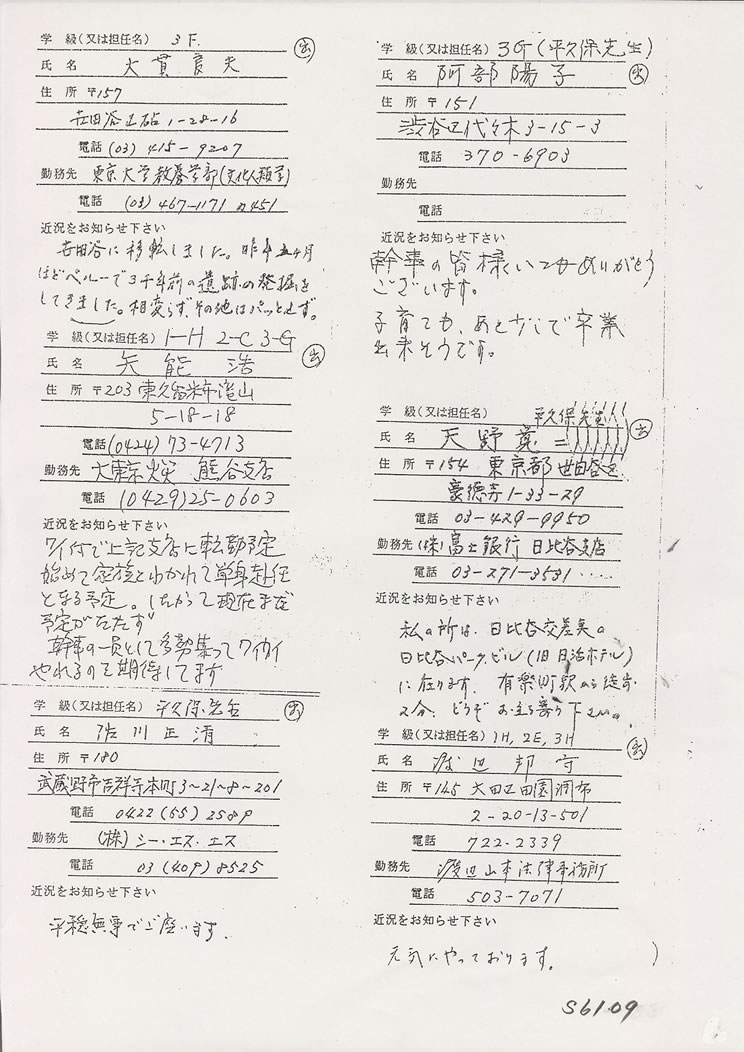 学 級(又は担任名) 3F.
出
氏 名 大貫良夫
住 所 〒157
世田谷区砧 1-28-16
電話 (03) 415-9207
勤務先 東京大学教養学部(文化人類学)
電話 (03) 467-1171 内451
近況をお知らせ下さい
世田谷に移転しました。昨年五ヶ月
ほどペルーで3千年前の遺跡の発掘を
してきました。相変らず、その他はパッとせず。
学 級(又は担任名) 1-H 2-C 3-G
出
氏 名 矢能 浩
住 所 〒203 東久留米市滝山
5-18-18
電話 (0424) 73-4713
勤務先 大東京火災 熊谷支店
電話 (0429)25-0603
近況をお知らせ下さい
7/1付で上記支店に転勤予定
始めて家族とわかれて単身赴任
となる予定。したがって現在まだ
予定がたたず
幹事の一員として多勢集ってワイワイ
やれるのを期待してます
学 級(又は担任名) 平久保先生
出
氏 名 佐川正清
住 所 〒180
武蔵野市吉祥寺本町3-21-8-201
電話 0422 (55) 2589
勤務先 (株) シー・エス・エス
電話 03 (409) 8525
近況をお知らせ下さい
平穏無事でご座います.
学 級(又は担任名) 3G (平久保先生)
氏 名 阿部陽子
住 所 〒151
渋谷区代々木3-15-3
電話 370-6903
勤務先
電話
近況をお知らせ下さい
幹事の皆様いつもありがとう
ございます。
子育ても、あと少しで卒業
出来そうです。
学 級(又は担任名) 平久保先生
出
氏 名 天野 寛
住 所 〒154 東京都世田谷区
豪徳寺1-33-29
電話 03-429-9950
勤務先 (株)富士銀行 日比谷支店
電話 03-271-3531
近況をお知らせ下さい
私の所は、日比谷交差点の
日比谷パークビル(旧日活ホテル)
に在ります. 有楽町駅から徒歩
2分. どうぞお立ち寄り下さい。
学 級(又は担任名) 1H, 2E, 3H
出
氏 名 渡辺邦守
住 所 〒145 大田区田園調布
2-20-13-501
電話 722-2339
勤務先 渡辺山本法律事務所
電話 503-7071
近況をお知らせ下さい
元気にやっております。
S61.09